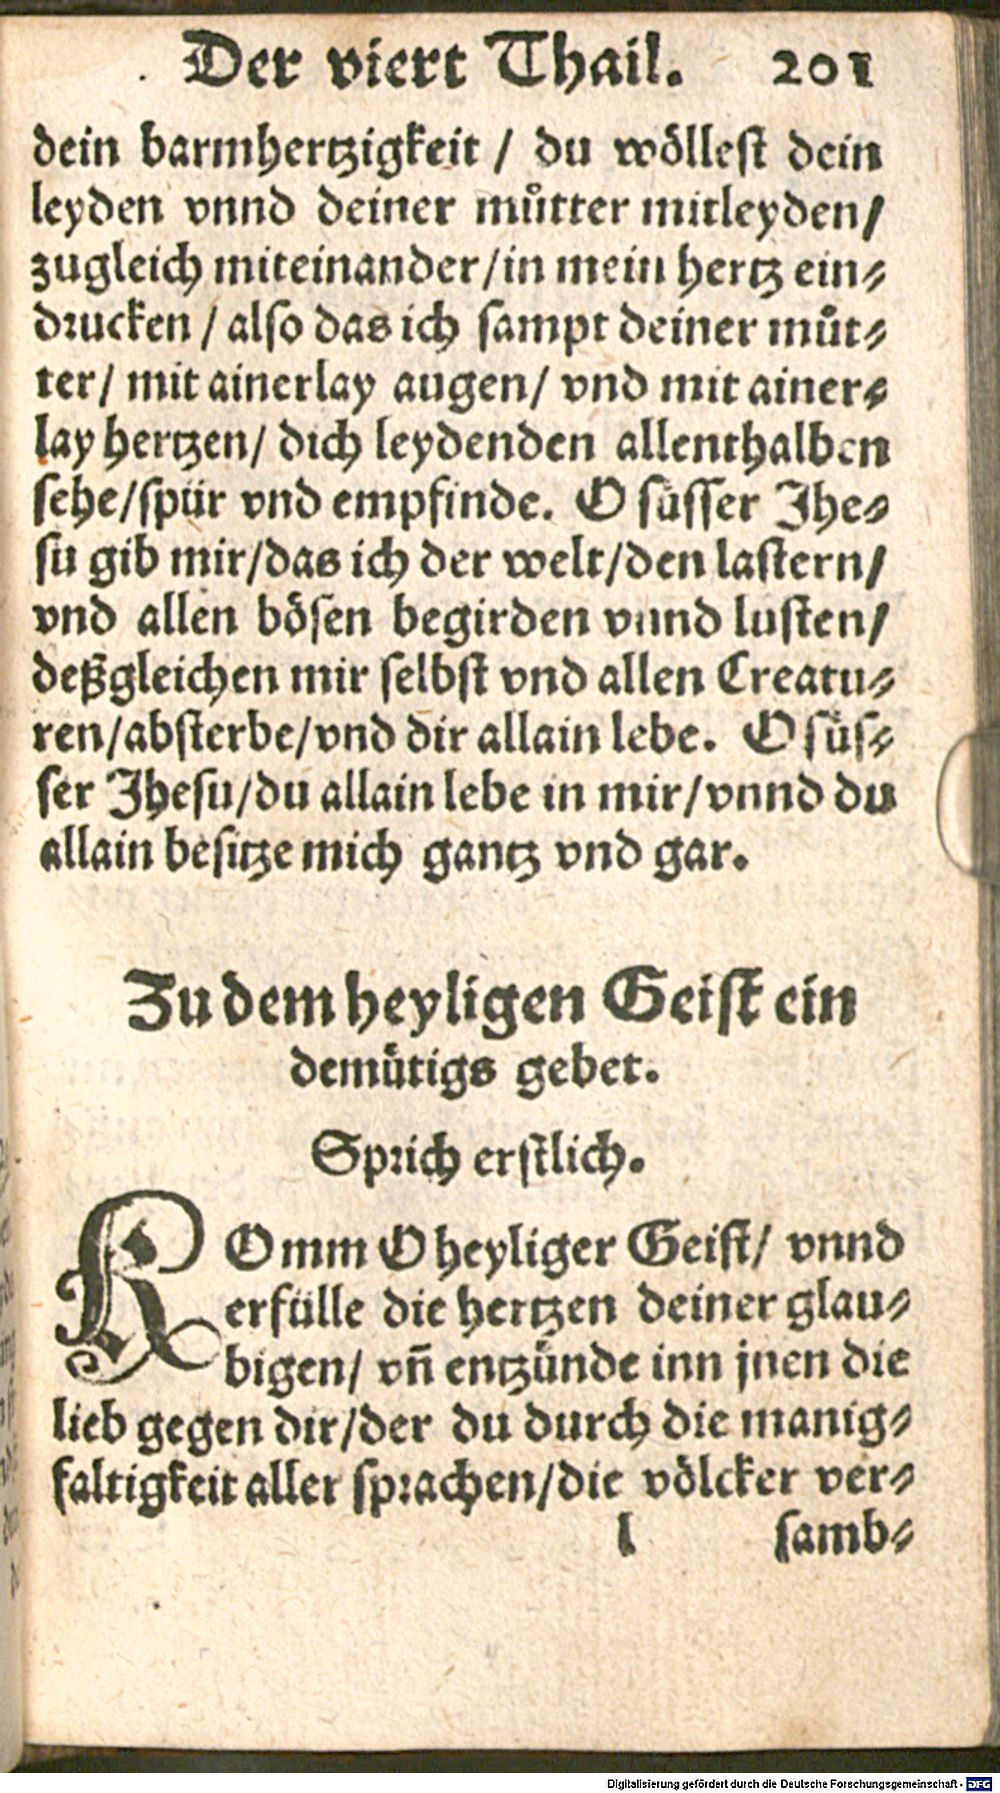 Der viert Thail. 201
dein barmhertzigkeit / du wöllest dein
leyden vnnd deiner můtter mitleyden/
zugleich miteinander/in mein hertz ein-
drucken / also das ich sampt deiner můt-
ter/ mit ainerlay augen/ vnd mit ainer-
lay hertzen/ dich leydenden allenthalben
sehe/spür vnd empfinde. O süsser Jhe-
su gib mir/das ich der welt/den lastern/
vnd allen bösen begirden vnnd lusten/
deßgleichen mir selbst vnd allen Creatu-
ren/absterbe/vnd dir allain lebe. O süs-
ser Jhesu/du allain lebe in mir/vnnd du
allain besitze mich gantz vnd gar.
Zu dem heyligen Geist ein
demütigs gebet.
Sprich erstlich.
KOmm O heyliger Geist/ vnnd
erfülle die hertzen deiner glau-
bigen/ vn̄ entzünde inn jnen die
lieb gegen dir/der du durch die manig-
faltigkeit aller sprachen/die völcker ver-
l samb-
Digitalisierung gefördert durch die Deutsche Forschungsgemeinschaft - DFG